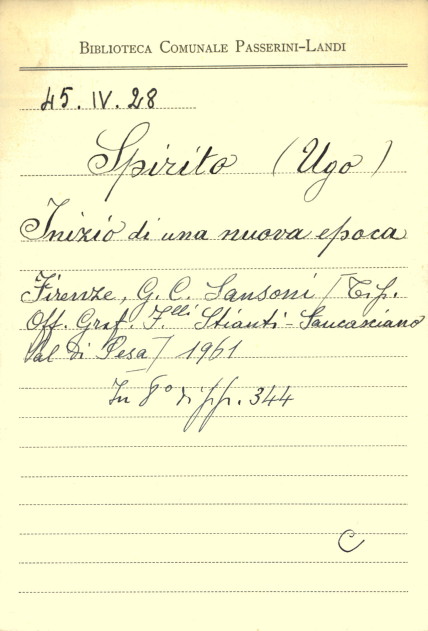 BIBLIOTECA COMUNALE PASSERINI-LANDI
45. IV. 28
Spirito (Ugo)
Inizio di una nuova epoca
Firenze, G. C. Sansoni [Tip.
Off. Graf. F.lli Stianti - Sancasciano
Val di Pesa] 1961
In 8° di pp. 344
C